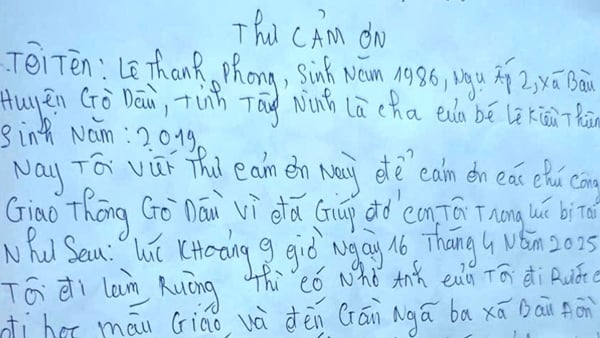 Thư CẢM ƠN
TÔI TÊN: Lê Thanh Phong, Sinh Năm 1986, Ngụ Ấp 2, xã Bàu
Huyện Gò Dầu, Tỉnh Tây Ninh Là cha của bé Lê Kiều Thiên
Sinh Năm: 2019
NAY TÔI Viết Thư cảm ơn Này để cảm ơn các chú Công
Giao Thông Gò Dầu Vì đã Giúp đỡ con Tôi Trong lúc bị Tai
Như Sau: lúc KHoảng 9 giờ Ngày 16 Tháng 4 Năm 2025
Tôi đi làm Ruộng Thì có Nhờ Anh của Tôi đi Rước c
đi học mẫu Giáo và đến Gần Ngã ba xã Bàu Đồn